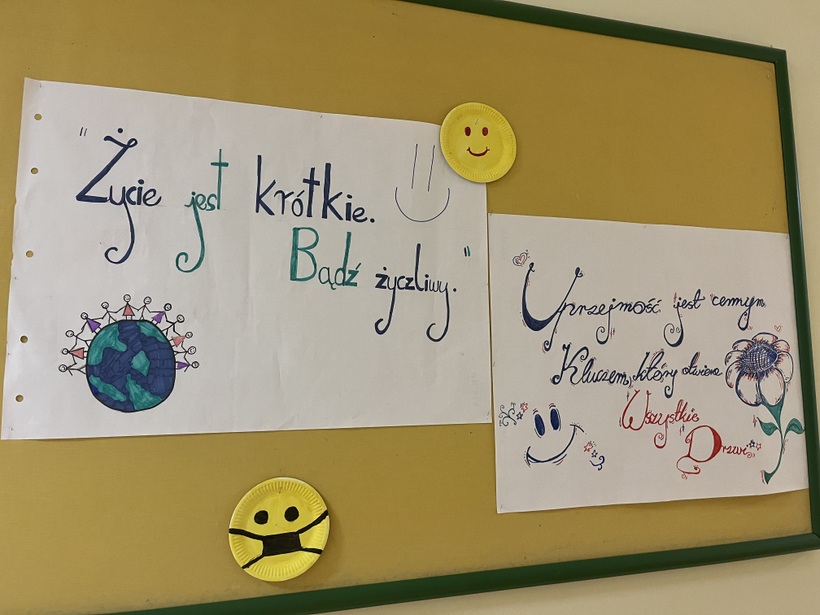 "Życie jest krótkie.
Bądź życzliwy."
Uprzejmość jest cennym
Kluczem, który otwiera
Wszystkie
Drzwi